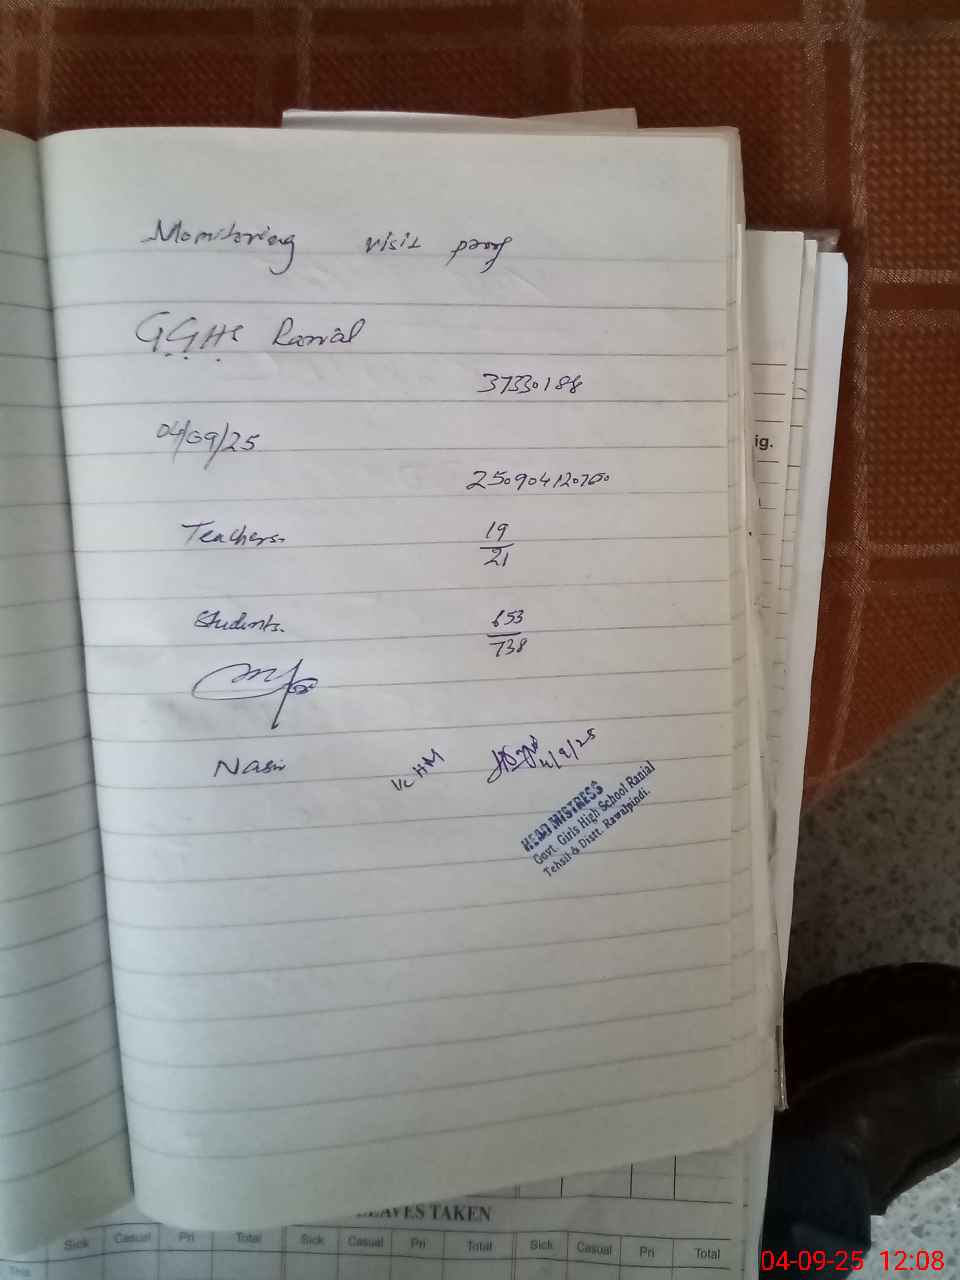 Monitoring visit proof
GGHS Ranial
37330188
04/09/25
Teachers 19
21
Students 653
738
Nasir
HM 4/9/25
HEAD MISTRESS
Govt. Girls High School Ranial
Tehsil & Distt. Rawalpindi.
ig.
LEAVES TAKEN
Sick Casual Pri Total Sick Casual Pri Total Sick Casual Pri Total
This
04-09-25 12:08